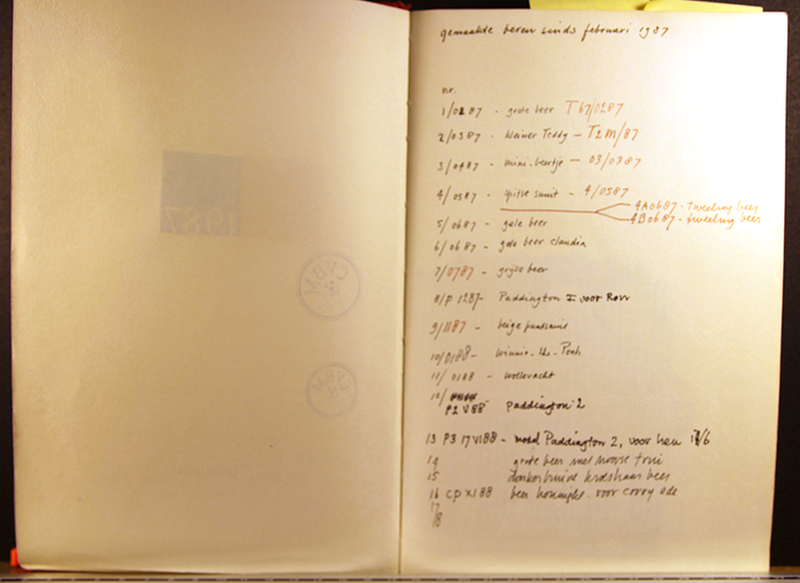 1987
gemaakte beren sinds februari 1987
nr.
1/0287 - grote beer T67/0287
2/0387 - kleiner Teddy - T2M/87
3/0487 - mini-beertje - 03/0387
4/0587 - spitse snuit - 4/0587
4A0687 - Tweeling beer
4B0687 - tweeling beer
5/0687 - gele beer
6/0687 - gele beer claudia
7/0787 - grijze beer
8/P 1287 - Paddington I voor Rov
9/1187 - beige puntsnuit
10/0188 - Winnie-the-Pooh
11/0188 - wollevacht
12/
P2 V88 paddington 2
13 P3 17VI88 - model Paddington 2, voor hen 17/6
14 grote beer met
15 donkerbruine beer
16 CP XI88 beer voor corry ede
17
18